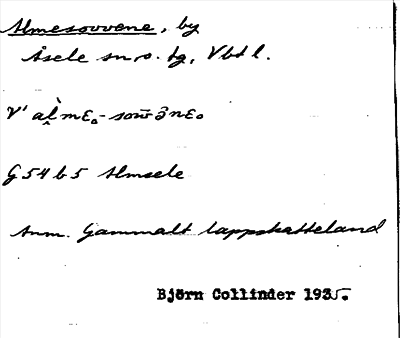 Almesovvene, by
Åsele sn. o. tg, Vbtl.
G54b5 Almsele
Anm. Gammalt lappskatteland
Björn Collinder 1935.